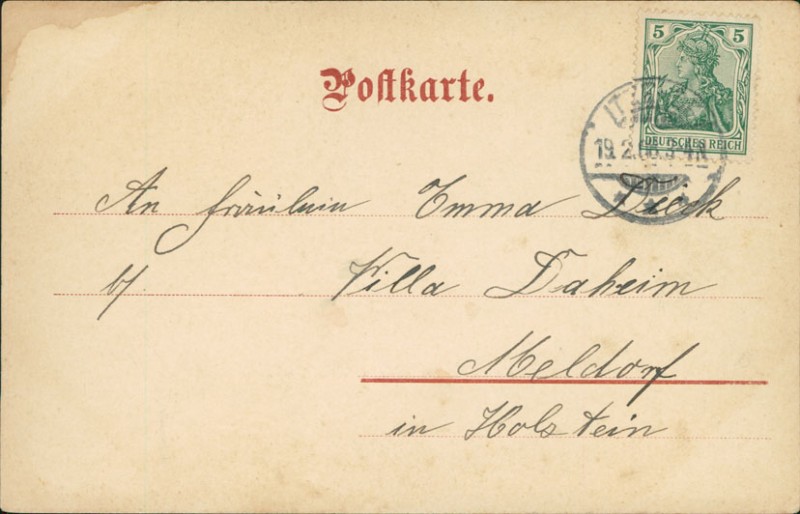 5 5
DEUTSCHES REICH
Postkarte.
19.2.
An Fräulein Emma Dieck
b/. Villa Daheim
Meldorf
in Holstein